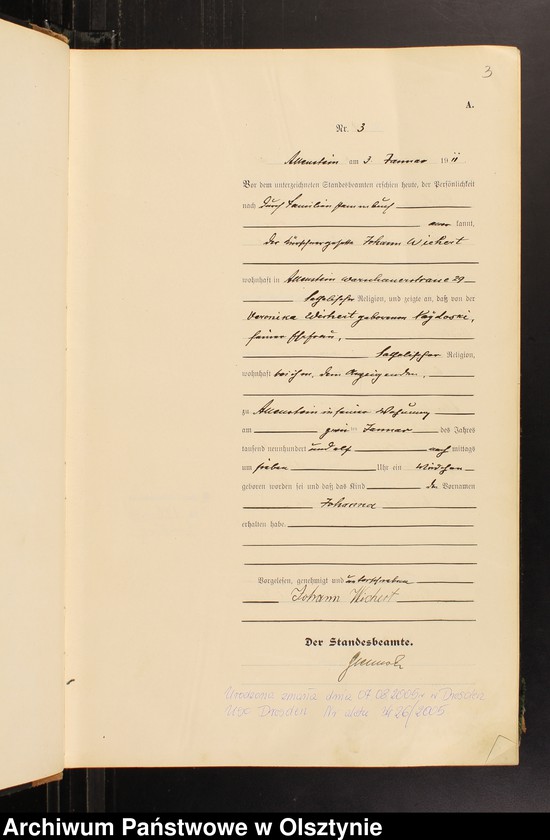 3
A.
Nr. 3
Allenstein am 3 Januar 1911
Vor dem unterzeichneten Standesbeamten erschien heute, der Persönlichkeit
nach durch Familienstammbuch
kannt,
der Johann Wichert
wohnhaft in Allenstein 29
katholischer Religion, und zeigte an, daß von der
Veronika Wichert geborenen
seiner Ehefrau,
katholischer Religion,
wohnhaft bei ihm, dem Anzeigenden,
zu Allenstein in seiner Wohnung
am Januar des Jahres
tausend neunhundert und elf nach mittags
um sieben Uhr ein Mädchen
geboren worden sei und daß das Kind den Vornamen
Johanna
erhalten habe.
Vorgelesen, genehmigt und unterschrieben
Johann Wichert
Der Standesbeamte.
zmarła dnia 2005 r. w Dresden
USC Dresden Nr aktu /2005
Archiwum Państwowe w Olsztynie